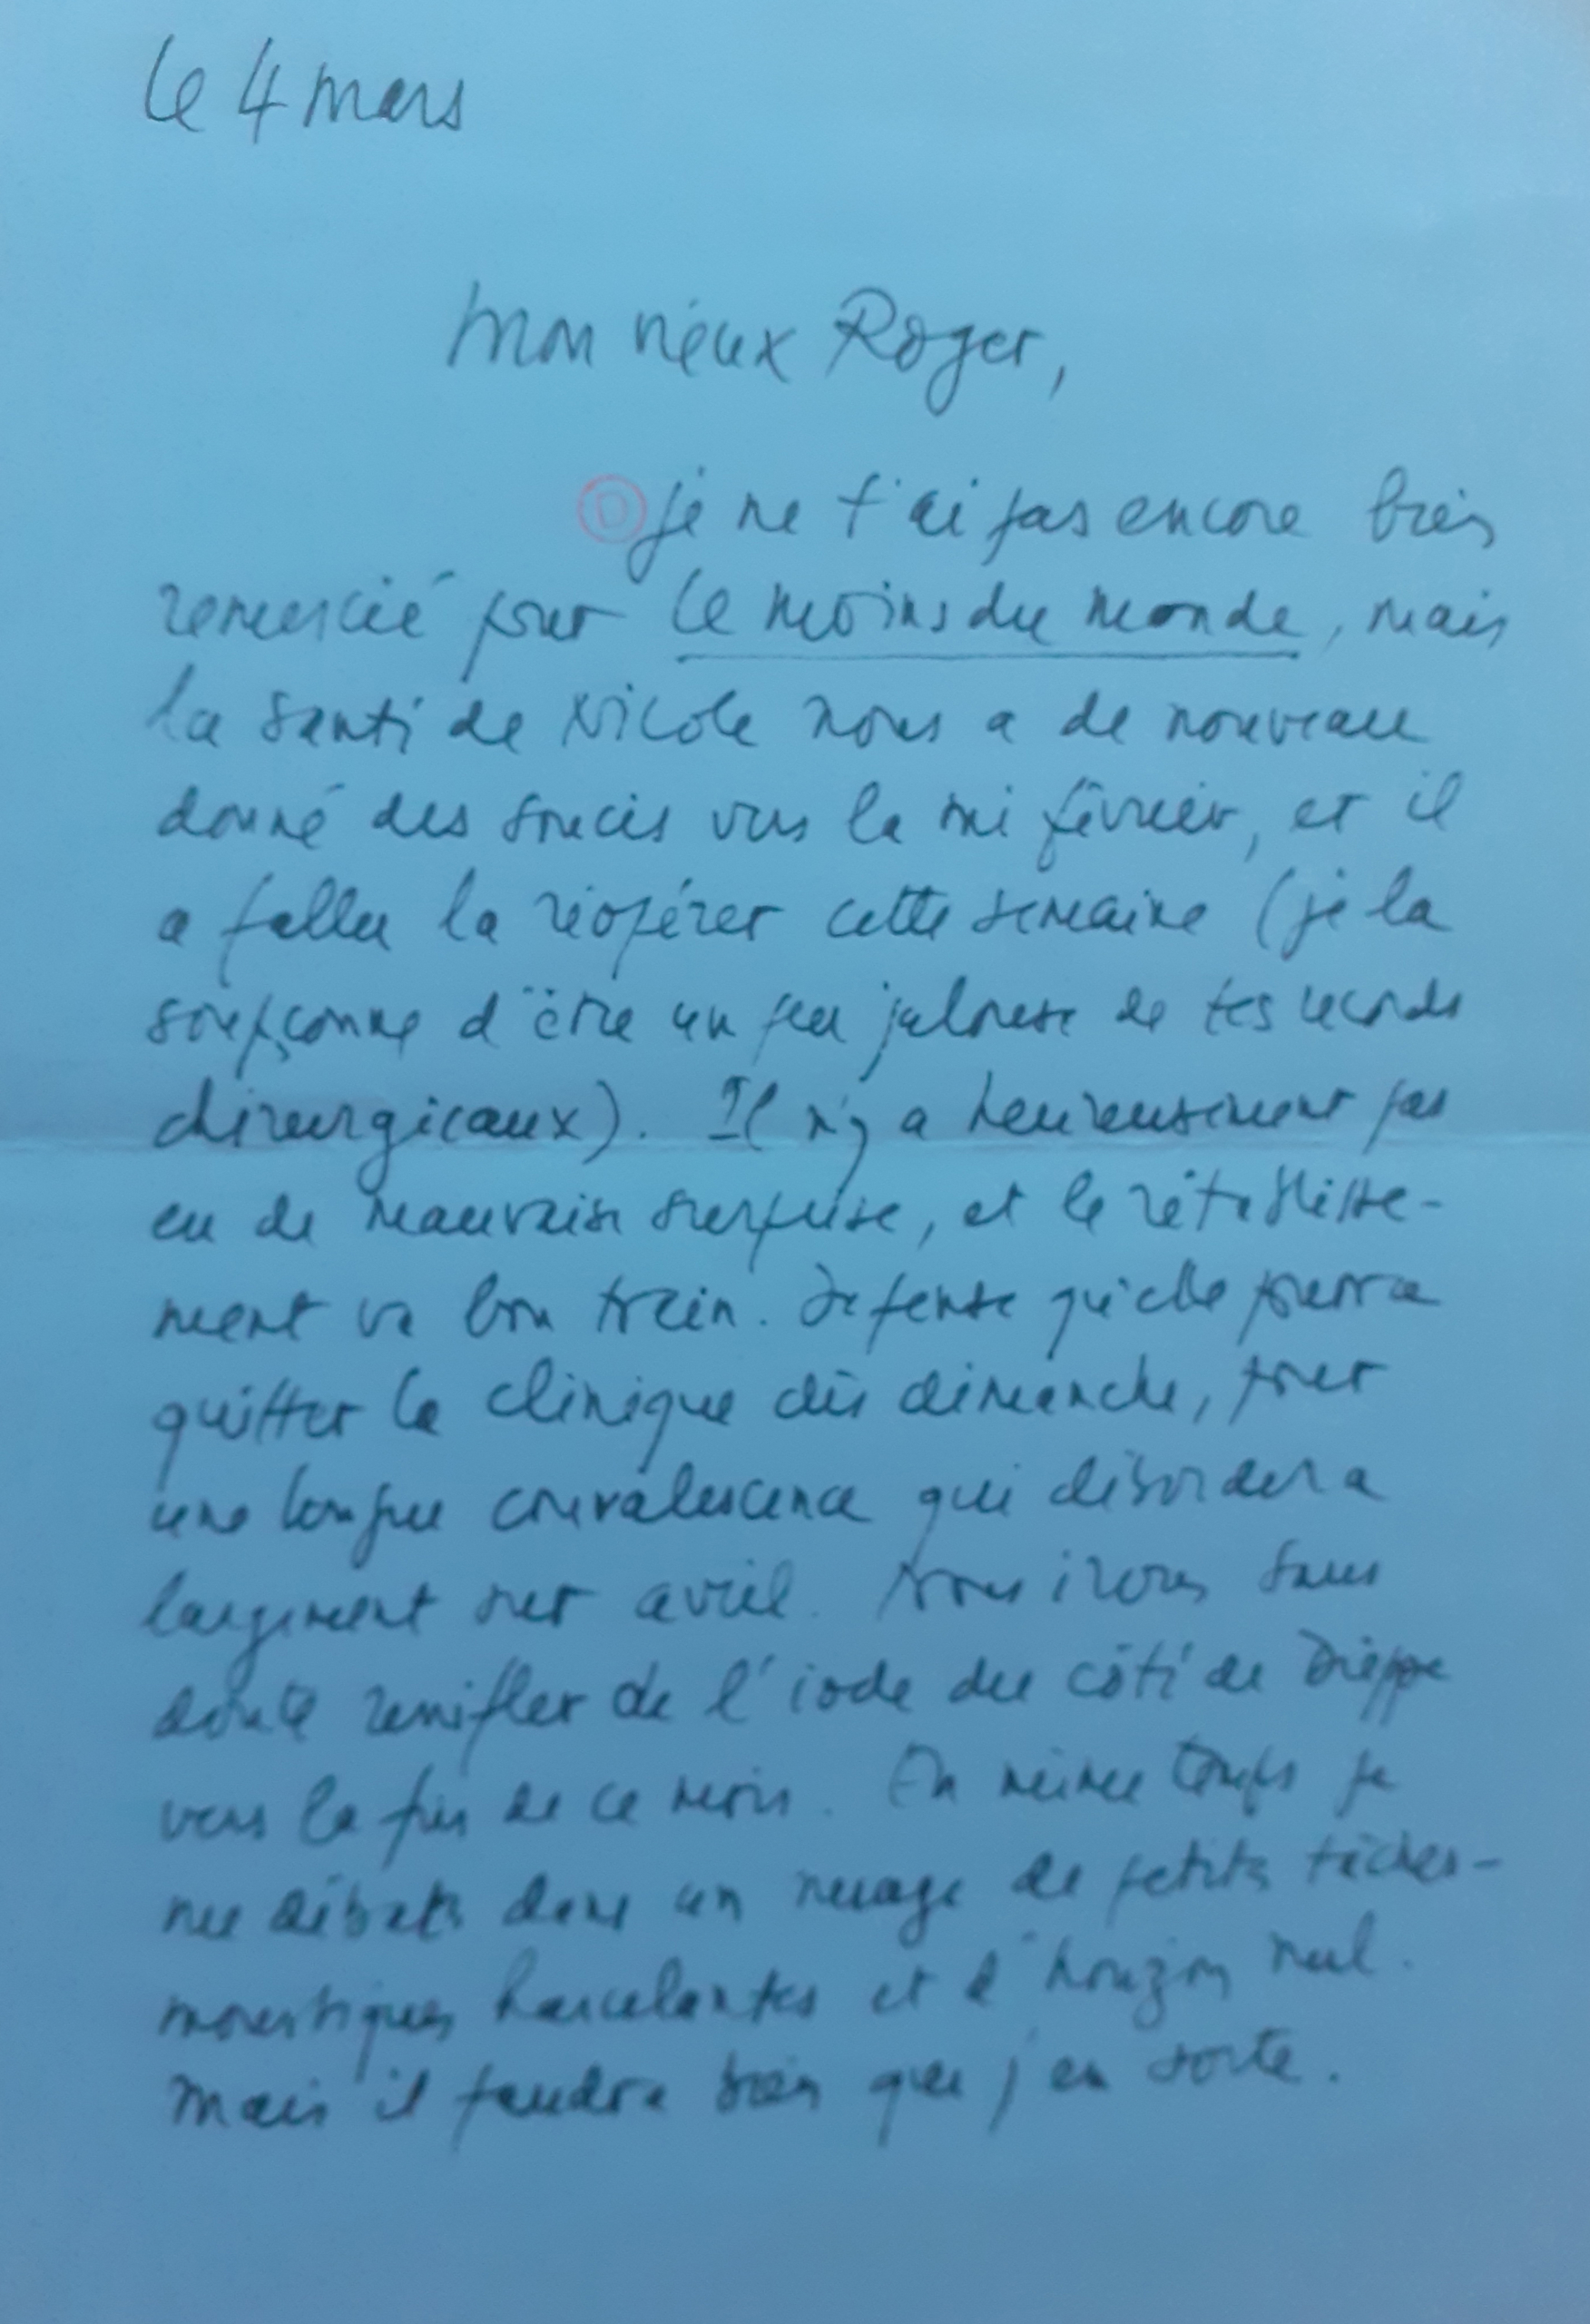 le 4 mars
Mon vieux Roger,
je ne t'ai pas encore bien
remercié pour le moins du monde, mais
la santé de Nicole nous a de nouveau
donné des soucis vers la mi février, et il
a fallu la réopérer cette semaine (je la
soupçonne d'être un peu jalouse de tes records
chirurgicaux). Il n'y a heureusement pas
eu de mauvaise surprise, et le rétablisse-
ment va bon train. Je pense qu'elle pourra
quitter la clinique dès dimanche, pour
une longue convalescence qui débordera
largement sur avril. Nous irons sans
doute renifler de l'iode du côté de Dieppe
vers la fin de ce mois. En même temps je
me débats dans un nuage de petites tâches-
moustiques harcelantes et d'horizon nul.
Mais il faudra bien que j'en sorte.